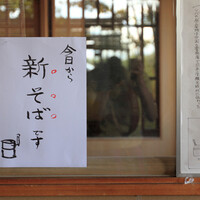 今日から
新そばです